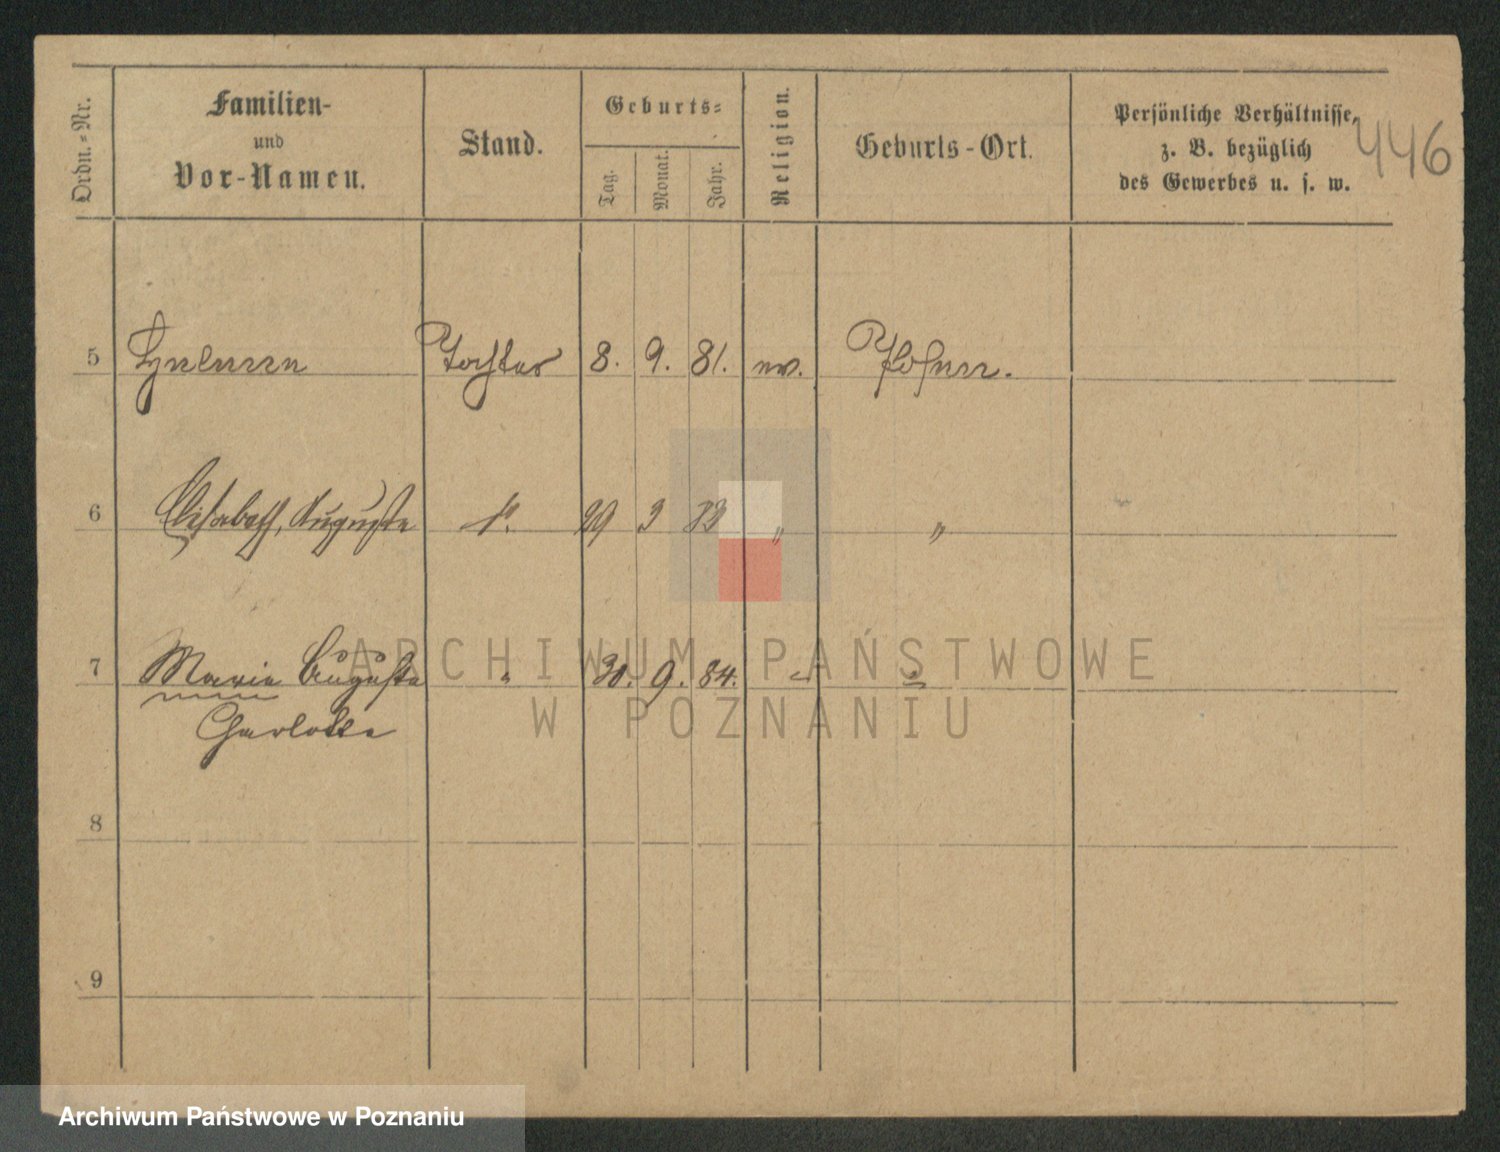 Ordn.-Nr.
Familien-
und
Vor-Namen.
Stand.
Geburts-
Tag.
Monat.
Jahr.
Religion.
Geburts-Ort.
Persönliche Verhältnisse,
z. B. bezüglich
des Gewerbes u. s. w.
446
5 Tochter 8. 9. 81. ev. Posen.
6 Elisabeth, Auguste 3 " "
7 Marie Auguste " 30. 9. 84. " "
Charlotte
8
9
ARCHIWUM PAŃSTWOWE
W POZNANIU
Archiwum Państwowe w Poznaniu